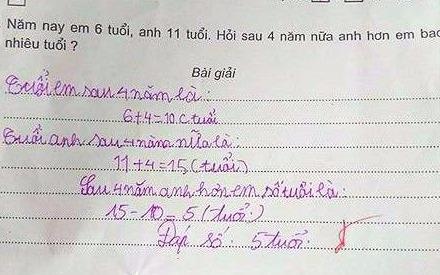 Năm nay em 6 tuổi, anh 11 tuổi. Hỏi sau 4 năm nữa anh hơn em bao
nhiêu tuổi ?
Bài giải
Tuổi em sau 4 năm là :
6+4=10 ( tuổi
Tuổi anh sau 4 năm nữa là :
11+4=15 (tuổi)
Sau 4 năm anh hơn em số tuổi là :
15-10=5 (tuổi)
Đáp số : 5 tuổi.